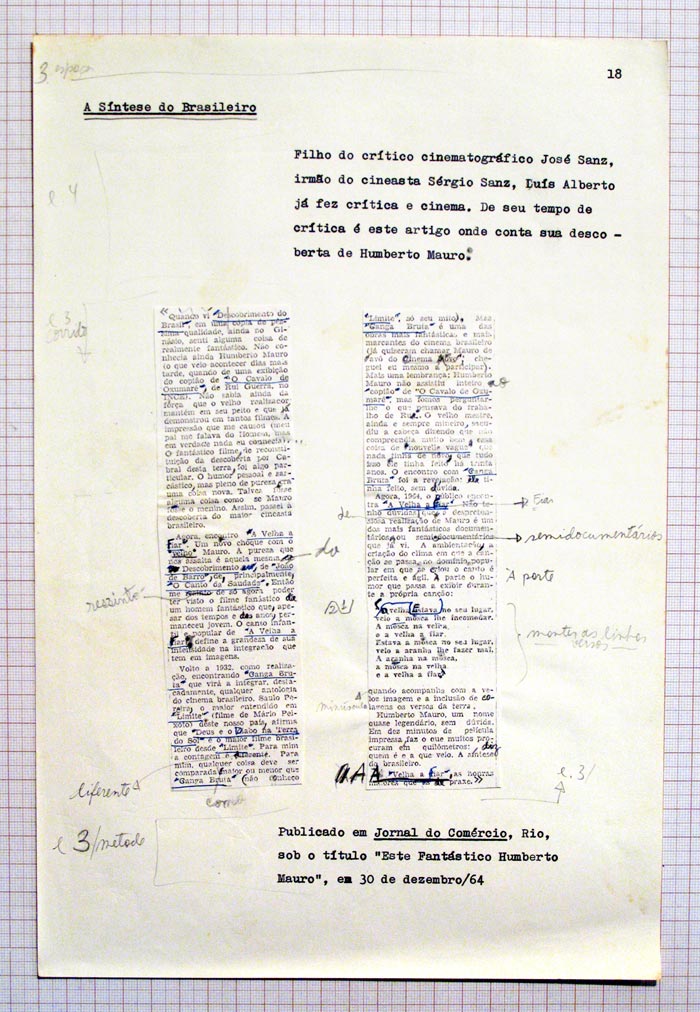 3 espos
18
A Síntese do Brasileiro
Filho do crítico cinematográfico José Sanz,
irmão do cineasta Sérgio Sanz, Luís Alberto
já fez crítica e cinema. De seu tempo de
crítica é este artigo onde conta sua desco -
berta de Humberto Mauro.
"Quando vi "Descobrimento do
Brasil", em uma cópia de pés-
sima qualidade, ainda no Gi-
násio, senti alguma coisa de
realmente fantástico. Não co-
nhecia ainda Humberto Mauro
(o que veio acontecer dias mais
tarde, quando de uma exibição
do copião de "O Cavalo de
Oxumaré", de Rui Guerra, no
INCE). Não sabia ainda da
força que o velho realizador
mantém em seu peito e que já
demonstrou em tantos filmes. A
impressão que me causou (meu
pai me falava do Homem, mas
em verdade nada eu conhecia)...
O fantástico filme, de reconsti-
tuição da descoberta por Ca-
bral desta terra, foi algo par-
ticular. O humor pessoal e sar-
cástico, mas pleno de pureza, era
uma coisa nova. Talvez fosse
alguma coisa como se Mauro
fosse o menino. Assim, passei à
descoberta do maior cineasta
brasileiro.
Agora, encontro "A Velha a
Fiar". Um novo choque com o
velho Mauro. A pureza que
nos assalta é aquela mesma
de Descobrimento de "João
de Barro", de, principalmente,
"O Canto da Saudade". Então
me de só agora poder
ter visto o filme fantástico de
um homem fantástico que, ape-
sar dos tempos e dos anos, per-
maneceu jovem. O canto infan-
til e popular de "A Velha a
Fiar" define a grandeza de sua
intensidade na integração que
tem em imagens.
Volto a 1932, como realiza-
ção, encontrando "Ganga Bru-
ta" que virá a integrar, desta-
cadamente, qualquer antologia
do cinema brasileiro. Saulo Pe-
reira, o maior entendido em
"Limite" (filme de Mário Pei-
xoto) deste nosso país, afirma
que "Deus e o Diabo na Terra
do Sol" é o maior filme brasi-
leiro desde "Limite". Para mim
a contagem é diferente. Para
mim, qualquer coisa deve ser
comparada maior ou menor que
"Ganga Bruta" (não conheço
"Limite", só seu mito). Mas
"Ganga Bruta" é uma das
obras mais fantásticas e mais
marcantes do cinema brasileiro
(já quiseram chamar Mauro de
"avô do Cinema Novo"; che-
guei eu mesmo a participar).
Mais uma lembrança: Humberto
Mauro não assistiu inteiro ao
"copião" de "O Cavalo de Oxu-
maré", mas fomos perguntar-
lhe o que pensava do traba-
lho de Rui. O velho mestre,
ainda e sempre mineiro, sacu-
diu a cabeça dizendo que não
compreendia muito bem essa
coisa de "nouvelle vague", que
nada tinha de novo, que tudo
isso ele tinha feito há trinta
anos. O encontro com "Ganga
Bruta" foi a revelação: ele ti-
nha feito, sem dúvida.
Agora, 1964, o público encon-
tra "A Velha a Fiar". Não te-
nho dúvidas que a despreten-
siosa realização de Mauro é um
dos mais fantásticos documentá-
rios ou semidocumentários
que já vi. A ambientação, a
criação do clima em que a can-
ção se passa, no domínio popu-
lar em que se criou o canto é
perfeita e ágil. À parte o hu-
mor que passa a exibir durante
a própria canção:
"Estava a velha no seu lugar,
veio a mosca lhe incomodar.
A mosca na velha
e a velha a fiar.
Estava a mosca no seu lugar,
veio a aranha lhe fazer mal.
A aranha na mosca,
a mosca na velha
e a velha a fiar"
quando acompanha com a ve-
loz imagem e a inclusão de co-
lagens os versos da terra.
Humberto Mauro, um nome
quase legendário, sem dúvida.
Em dez minutos de película
impressa, faz o que muitos pro-
curam em quilômetros: diz
quem é e a que veio. A síntese
do brasileiro.
A "Velha a Fiar", as honras
maiores que as de praxe."
semidocumentários
À parte
minúscula
diferente
como
l 3/metade
Publicado em Jornal do Comércio, Rio,
sob o título "Este Fantástico Humberto
Mauro", em 30 de dezembro/64